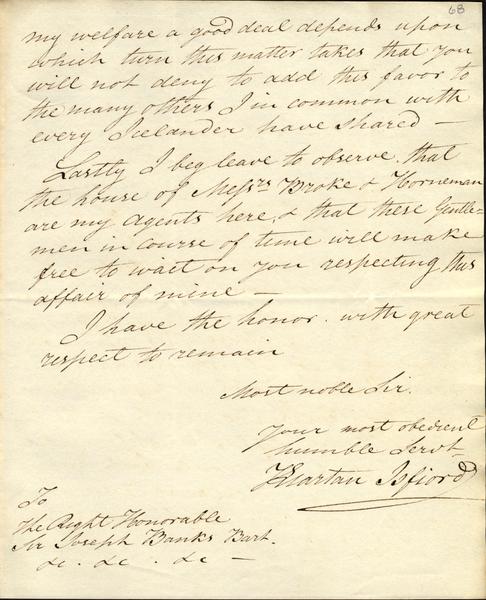 68
my welfare a good deal depends upon
which turn this matter takes that you
will not deny to add this favor to
the many others I in common with
every Icelander have shared —
Lastly I beg leave to observe that
the house of Messrs Broke & Horneman
are my Agents here, & that these Gentle=
men in course of time will make
free to wait on you respecting this
affair of mine —
I have the honor with great
respect to remain
Most noble Sir.
Your most obedient
humble Servt
Kiartan Isfiord
To
The Right Honorable
Sir Joseph Banks Bart.
&c. &c. &c —